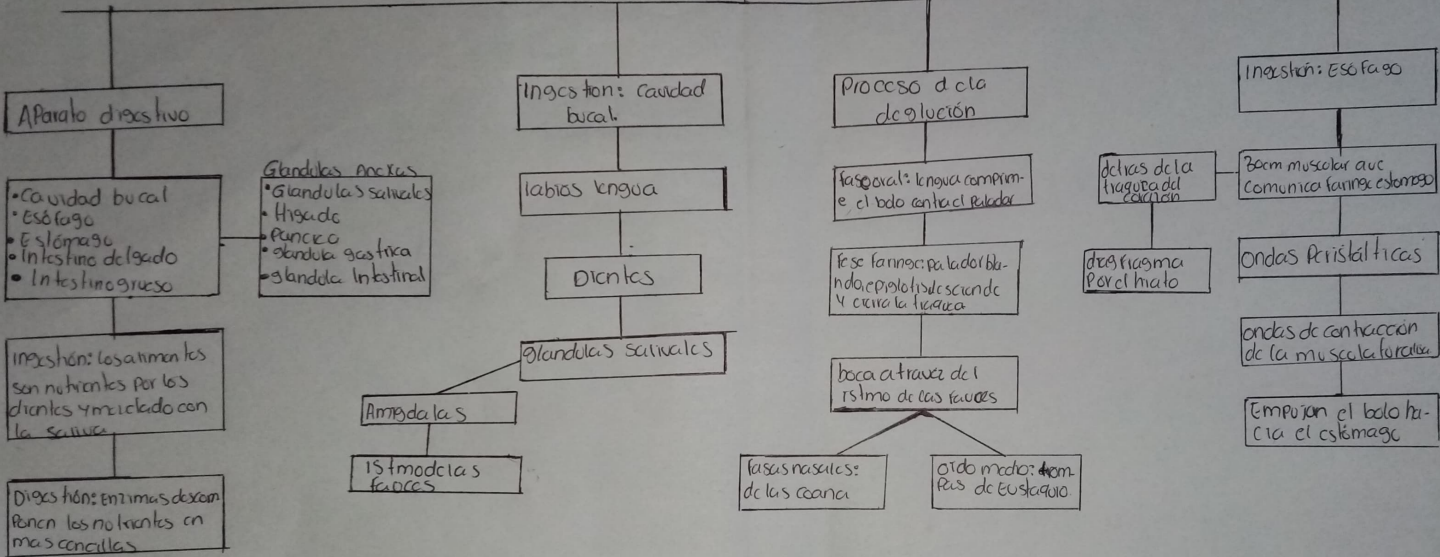 Aparato digestivo
•Cavidad bucal
•Esófago
•Estómago
•Intestino delgado
• Intestino grueso
Glandulas Anexas
•Glandulas salivales
•Higado
•Pancreo
•glandula gastrica
•glandola Intestinal
Ingestión: los alimentos
son nutrientes por los
dientes y mezclado con
la saliva
Digestión: enzimas descom
ponen los nutrientes en
mas cencillas
Ingestion: cavidad
bucal.
labios lengua
Dientes
glandolas salivales
Amigdalas
istmo de las
fauces
Proceso de la
deglución
fase oral: lengua comprim-
e el bolo contra el paladar
fese faringe: paladar bla-
ndo, epiglotis desciende
y cierra la traquea
boca a travez del
istmo de las fauces
fasas nasales:
de las coana
oido medio: trom
pas de Eustaquio
Ingestión: Esófago
muscolar que
comunica faringe estomago
detras de la
del
corazón
diagfragma
por el hiato
ondas Peristálticas
ondas de contracción
de la muscolatora
Empujan el bolo ha-
cia el estómago